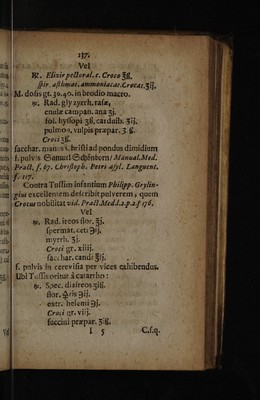 137.
Vel
℞. Elixir pectoral. c. Croco ℥ß.
spir. asthmat. ammoniacat. Crocat. ʒij.
M. dosis gt. 30. 40. in brodio macro.
℞. Rad. glyzyrrh. rasæ,
enulæ campan. ana ʒj.
fol. hyssopi ʒß. cardui b. ʒij.
pulmon. vulpis præpar. ʒß.
Croci ʒß.
sacchar. manus Christi ad pondus dimidium
f. pulvis Samuel Schönborn / Manual. Med.
Pract. f. 67. Christoph. Petri asyl. Languent.
f. 117.
Contra Tussim infantium Philipp. Grylin-
gius excellentem describit pulverem, quem
Crocus nobilitat vid. Pract. Med. l. 2. p. 2. f. 176.
Vel
℞. Rad. ireos flor. ʒj.
spermat. ceti ℈ij.
myrrh. ʒj.
Croci gr. xiiij.
sacchar. candi ʒij.
f. pulvis in cerevisia per vices exhibendus.
Ubi Tussis oritur à catarrho:
℞. Spec. diaireos ʒiß.
flor. 🜍ris ℈ij.
extr. helenii ℈j.
Croci gr. viij.
succini præpar. ʒiß.
I 5 C. s. q.